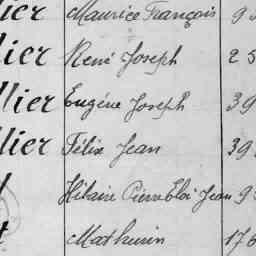 lier Maurice François 9
lier René Joseph 25
llier Eugéne Joseph 39
llier Félix Jean 39
l Hilaire Pierre Eloi Jean 9
t Mathurin 176